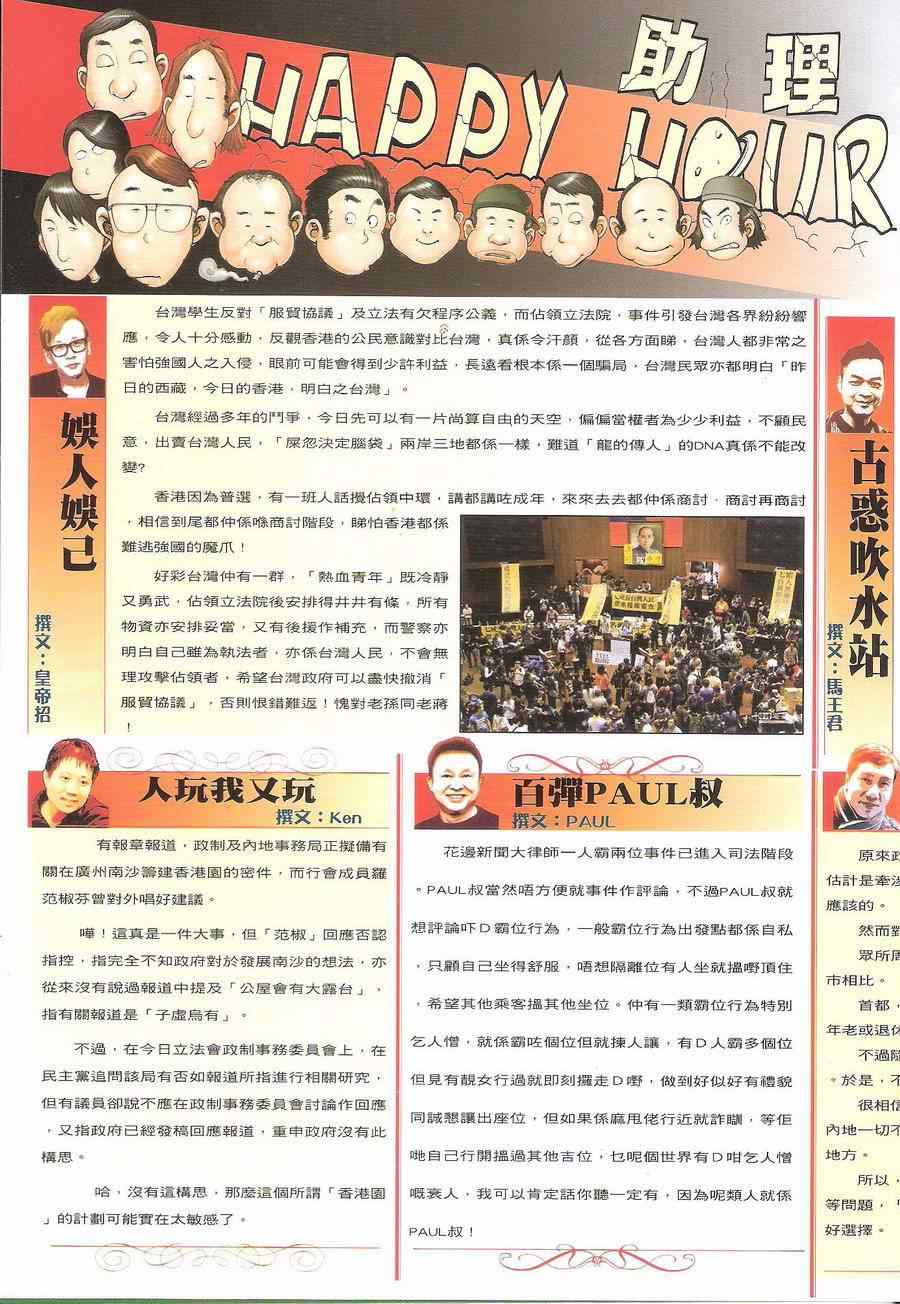 助理
HAPPY HOUR
娛人娛己
撰文：皇帝招
台灣學生反對「服貿協議」及立法有欠程序公義，而佔領立法院，事件引發台灣各界紛紛響
應，令人十分感動，反觀香港的公民意識對比台灣，真係令汗顏，從各方面睇，台灣人都非常之
害怕強國人之入侵，眼前可能會得到少許利益，長遠看根本係一個騙局，台灣民眾亦都明白「昨
日的西藏，今日的香港，明白之台灣」。
台灣經過多年的鬥爭，今日先可以有一片尚算自由的天空，偏偏當權者為少少利益，不顧民
意，出賣台灣人民，「屎忽決定腦袋」兩岸三地都係一樣，難道「龍的傳人」的DNA真係不能改
變？
香港因為普選，有一班人話擾佔領中環，講都講咗成年，來來去去都仲係商討，商討再商討
，相信到尾都仲係喺商討階段，睇怕香港都係
難逃強國的魔爪！
好彩台灣仲有一群，「熱血青年」既冷靜
又勇武，佔領立法院後安排得井井有條，所有
物資亦安排妥當，又有後援作補充，而警察亦
明白自己雖為執法者，亦係台灣人民，不會無
理攻擊佔領者，希望台灣政府可以盡快撤消「
服貿協議」，否則恨錯難返！愧對老孫同老蔣
！
古惑吹水站
撰文：馬王君
人玩我又玩
撰文：Ken
有報章報道，政制及內地事務局正擬備有
關在廣州南沙籌建香港園的密件，而行會成員羅
范椒芬曾對外唱好建議。
嘩！這真是一件大事，但「范椒」回應否認
指控，指完全不知政府對於發展南沙的想法，亦
從來沒有說過報道中提及「公屋會有大露台」，
指有關報道是「子虛烏有」。
不過，在今日立法會政制事務委員會上，在
民主黨追問該局有否如報道所指進行相關研究，
但有議員卻說不應在政制事務委員會討論作回應
，又指政府已經發稿回應報道，重申政府沒有此
構思。
哈，沒有這構思，那麼這個所謂「香港園
」的計劃可能實在太敏感了。
百彈PAUL叔
撰文：PAUL
花邊新聞大律師一人霸兩位事件已進入司法階段
。PAUL叔當然唔方便就事件作評論，不過PAUL叔就
想評論吓D霸位行為，一般霸位行為出發點都係自私
，只顧自己坐得舒服，唔想隔離位有人坐就搵嘢頂住
，希望其他乘客搵其他坐位。仲有一類霸位行為特別
乞人憎，就係霸咗個位但就揀人讓，有D人霸多個位
但見有靚女行過就即刻攞走D嘢，做到好似好有禮貌
同誠懇讓出座位，但如果係麻甩佬行近就詐瞓，等佢
哋自己行開搵過其他吉位，乜呢個世界有D咁乞人憎
嘅衰人，我可以肯定話你聽一定有，因為呢類人就係
PAUL叔！
原來政
估計是牽涉
應該的。
然而對
眾所周
市相比。
首都，
年老或退休
不過隨
。於是，不
很相信
內地一切不
地方。
所以，
等問題，「
好選擇。